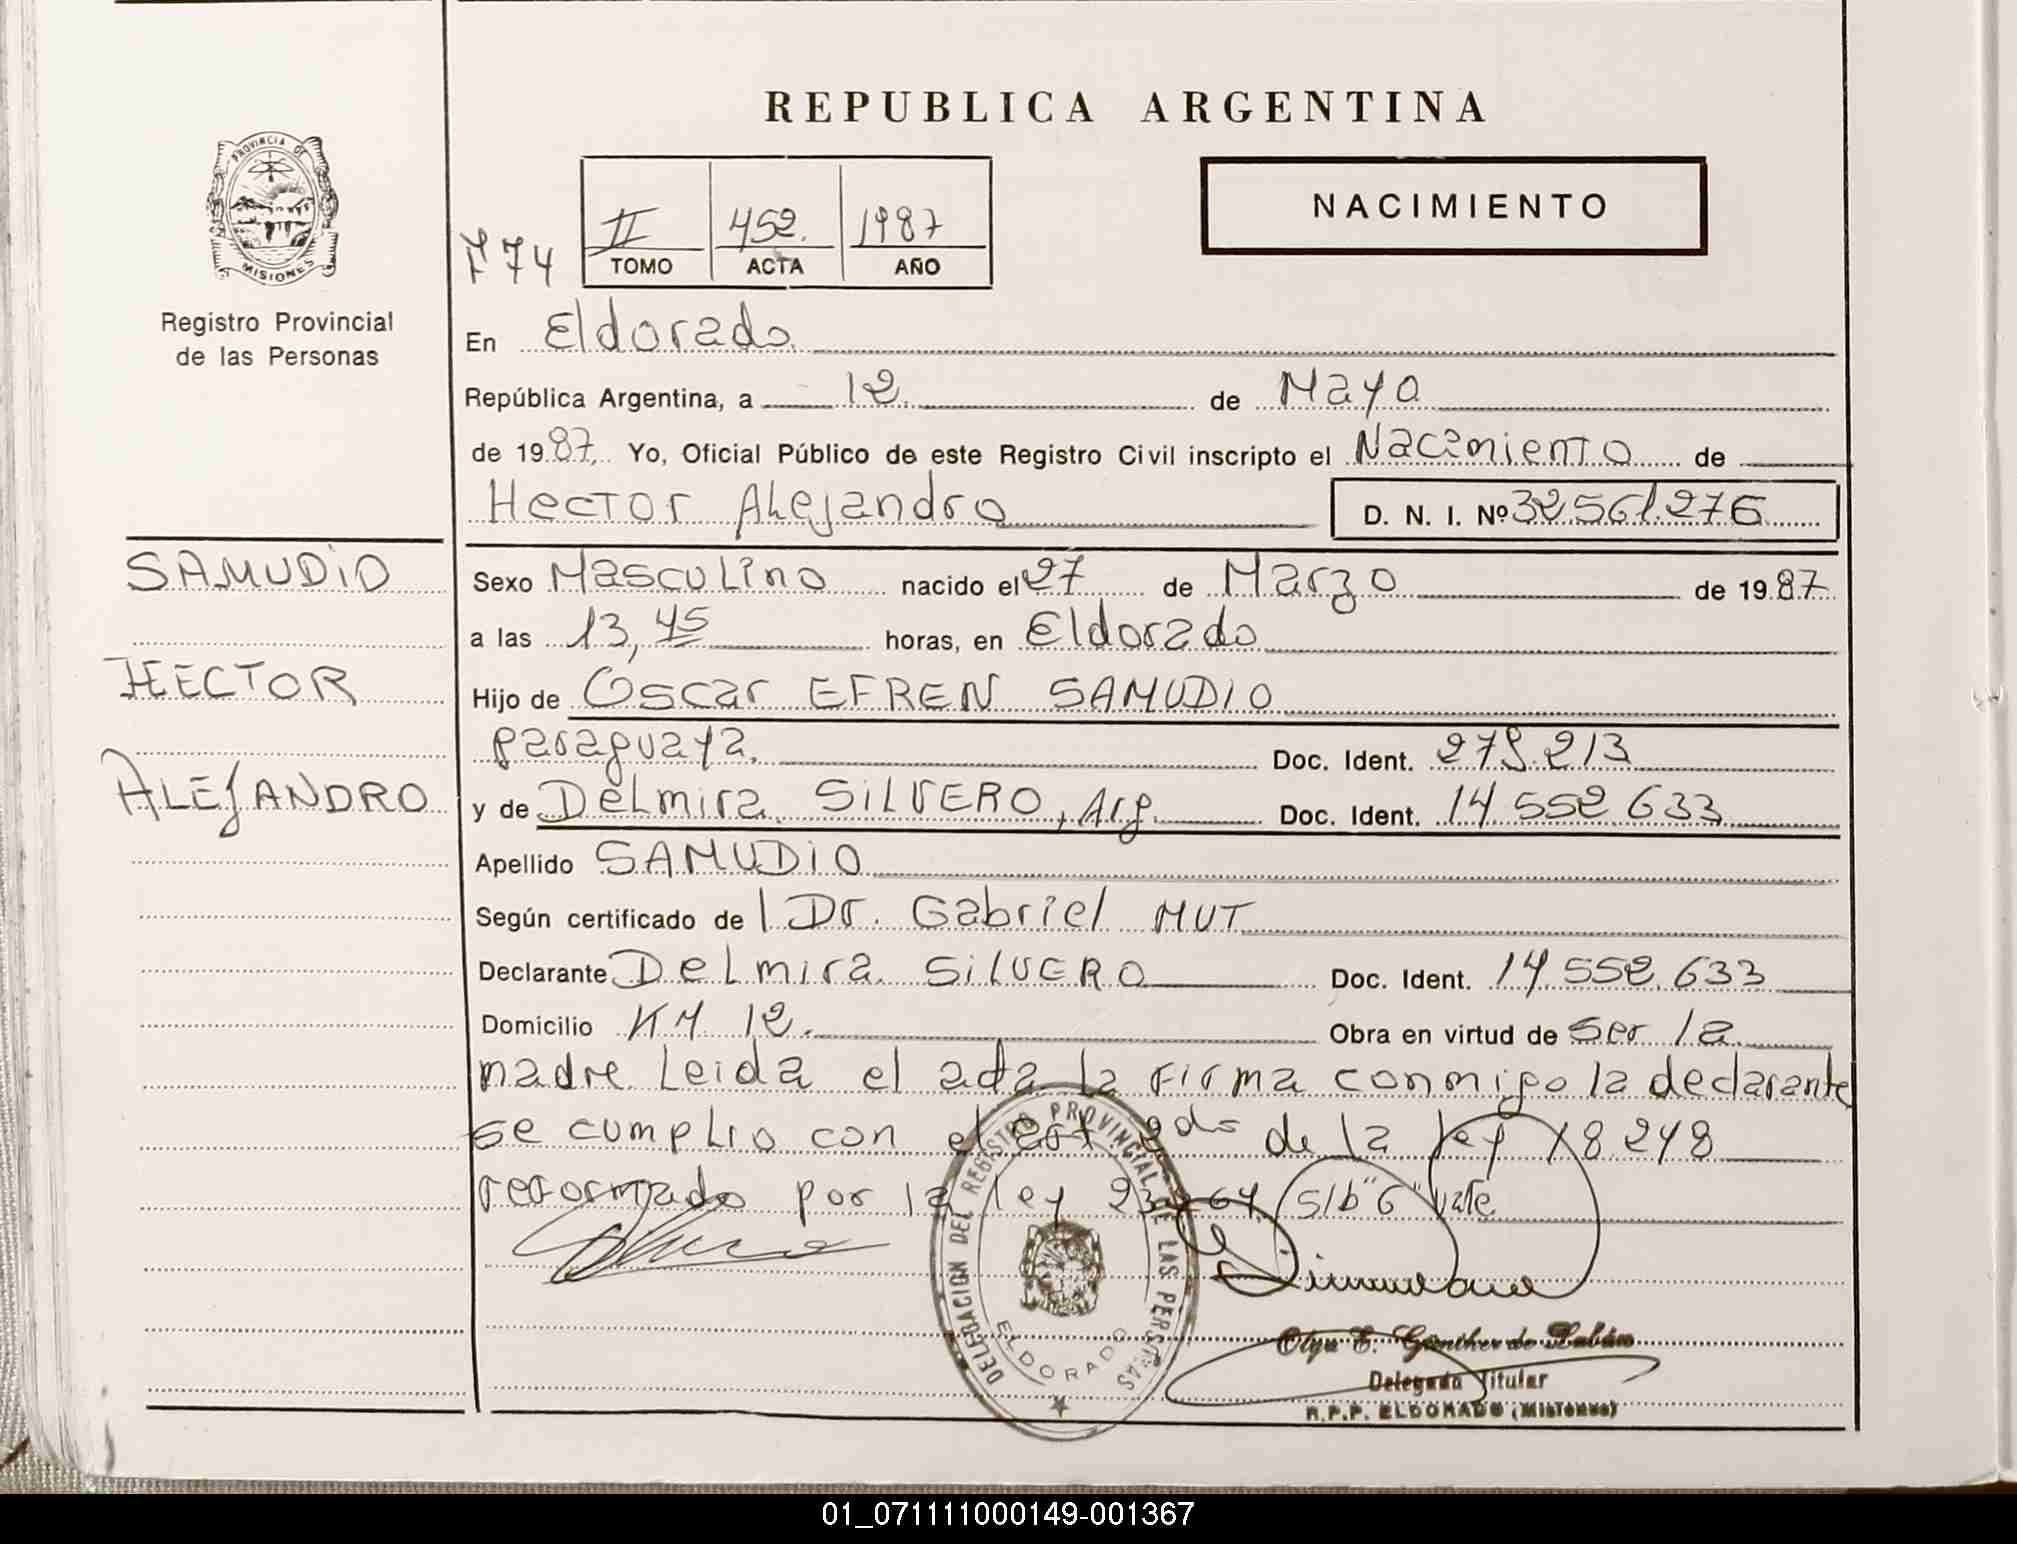 REPUBLICA ARGENTINA
PROVINCIA DE
MISIONES
Registro Provincial
de las Personas
F 74
II 452. 1987
TOMO ACTA AÑO
NACIMIENTO
En Eldorado.
República Argentina, a 12. de Mayo
de 1987. Yo, Oficial Público de este Registro Civil inscripto el Nacimiento de
Hector Alejandro D. N. I. Nº 32.561.276
SAMUDIO
HECTOR
ALEJANDRO
Sexo Masculino nacido el 27 de Marzo de 1987
a las 13,45 horas, en Eldorado
Hijo de Oscar EFREN SAMUDIO
paraguaya. Doc. Ident. 279.213
y de Delmira SILVERO, Arg. Doc. Ident. 14.552.633
Apellido SAMUDIO
Según certificado de l Dr. Gabriel MUT
Declarante Delmira SILVERO Doc. Ident. 14.552.633
Domicilio KM 12. Obra en virtud de ser la
madre Leida el acta la firma conmigo la declarante
se cumplio con el art 2do de la ley 18248
reformado por la ley 23264 S/b "6" vale
DELEGACION DEL REGISTRO PROVINCIAL DE LAS PERSONAS
ELDORADO
Olga E. Günther de
Delegada Titular
R.P.P. ELDORADO (Misiones)
01_071111000149-001367